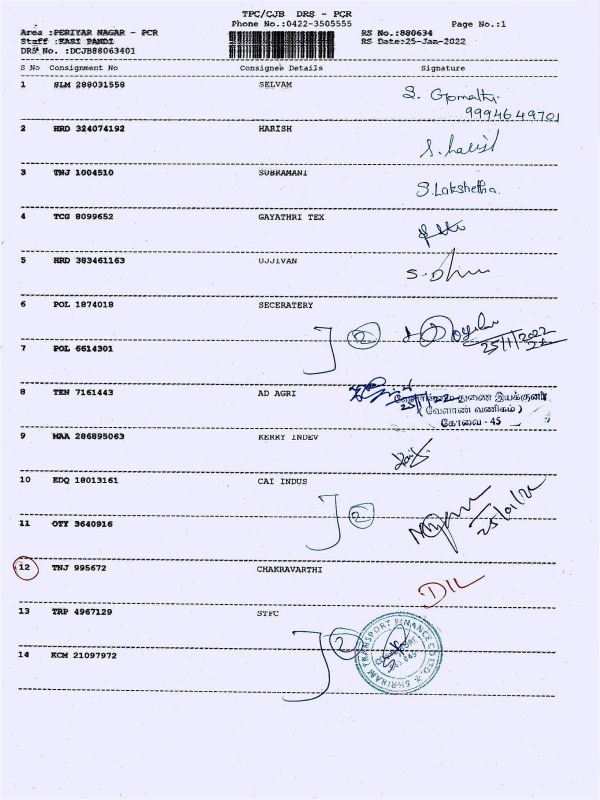 TPC/CJB DRS - PCR
Phone No.:0422-3505555
Page No.:1
Area :PERIYAR NAGAR - PCR
RS No.:880634
Staff :KASI PANDI
RS Date:25-Jan-2022
DRS No. :DCJB88063401
S No Consignment No Consignee Details Signature
1 SLM 288031558 SELVAM S. Gomathi
9994649701
2 HRD 324074192 HARISH S. harish
3 TNJ 1004510 SUBRAMANI S. Lakshetha.
4 TCG 8099652 GAYATHRI TEX
5 HRD 383461163 UJJIVAN
6 POL 1874018 SECERATERY
2 25/1/2022
7 POL 6614301
8 TEN 7161443 AD AGRI
துணை இயக்குனர்
வேளாண் வணிகம் )
கோவை - 45
9 MAA 286895063 KERRY INDEV
10 EDQ 18013161 CAI INDUS
2 25/01/22
11 OTY 3640916
12 TNJ 995672 CHAKRAVARTHI DIL
13 TRP 4967129 STFC
2 SHRIRAM TRANSPORT FINANCE CO LTD.
14 KCM 21097972